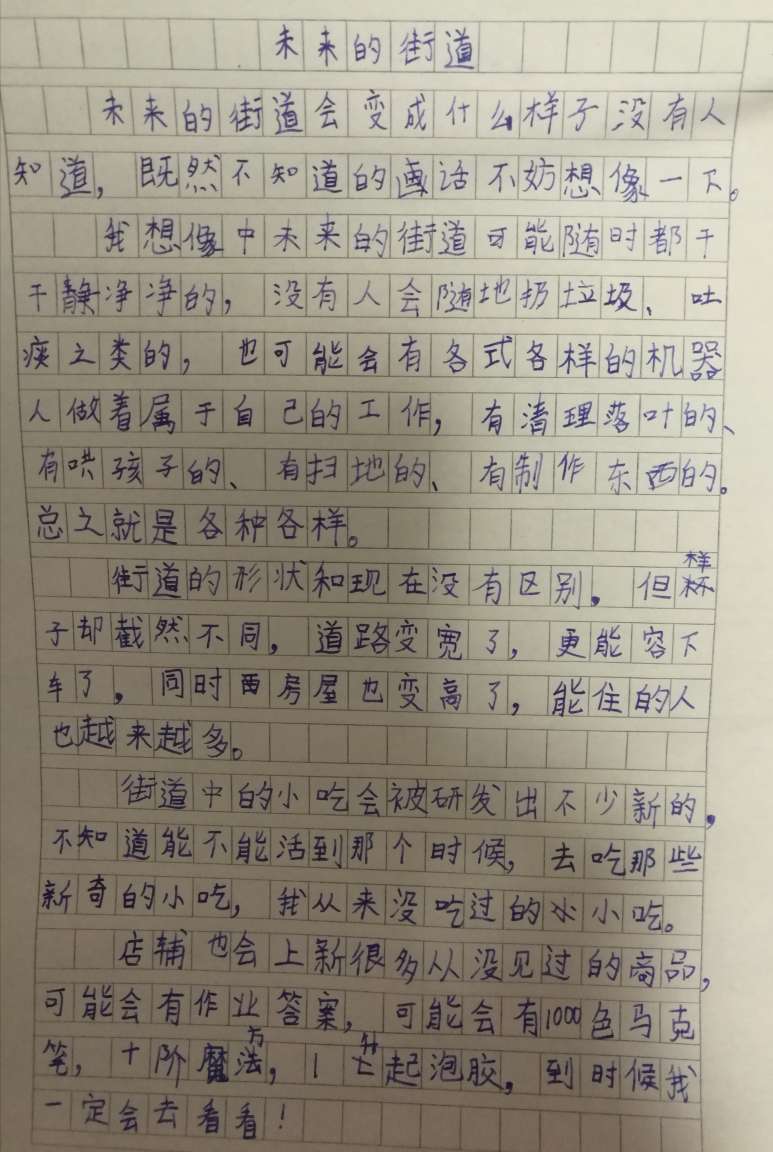 未来的街道
未来的街道会变成什么样子没有人
知道，既然不知道的话不妨想像一下。
我想像中未来的街道可能随时都干
干静净净的，没有人会随地扔垃圾、吐
痰之类的，也可能会有各式各样的机器
人做着属于自己的工作，有清理落叶的、
有哄孩子的、有扫地的、有制作东西的。
总之就是各种各样。
街道的形状和现在没有区别，但样
子却截然不同，道路变宽了，更能容下
车了，同时房屋也变高了，能住的人
也越来越多。
街道中的小吃会被研发出不少新的，
不知道能不能活到那个时候，去吃那些
新奇的小吃，我从来没吃过的小吃。
店铺也会上新很多从没见过的商品，
可能会有作业答案，可能会有1000色马克
笔，十阶魔方，1升起泡胶，到时候我
一定会去看看！